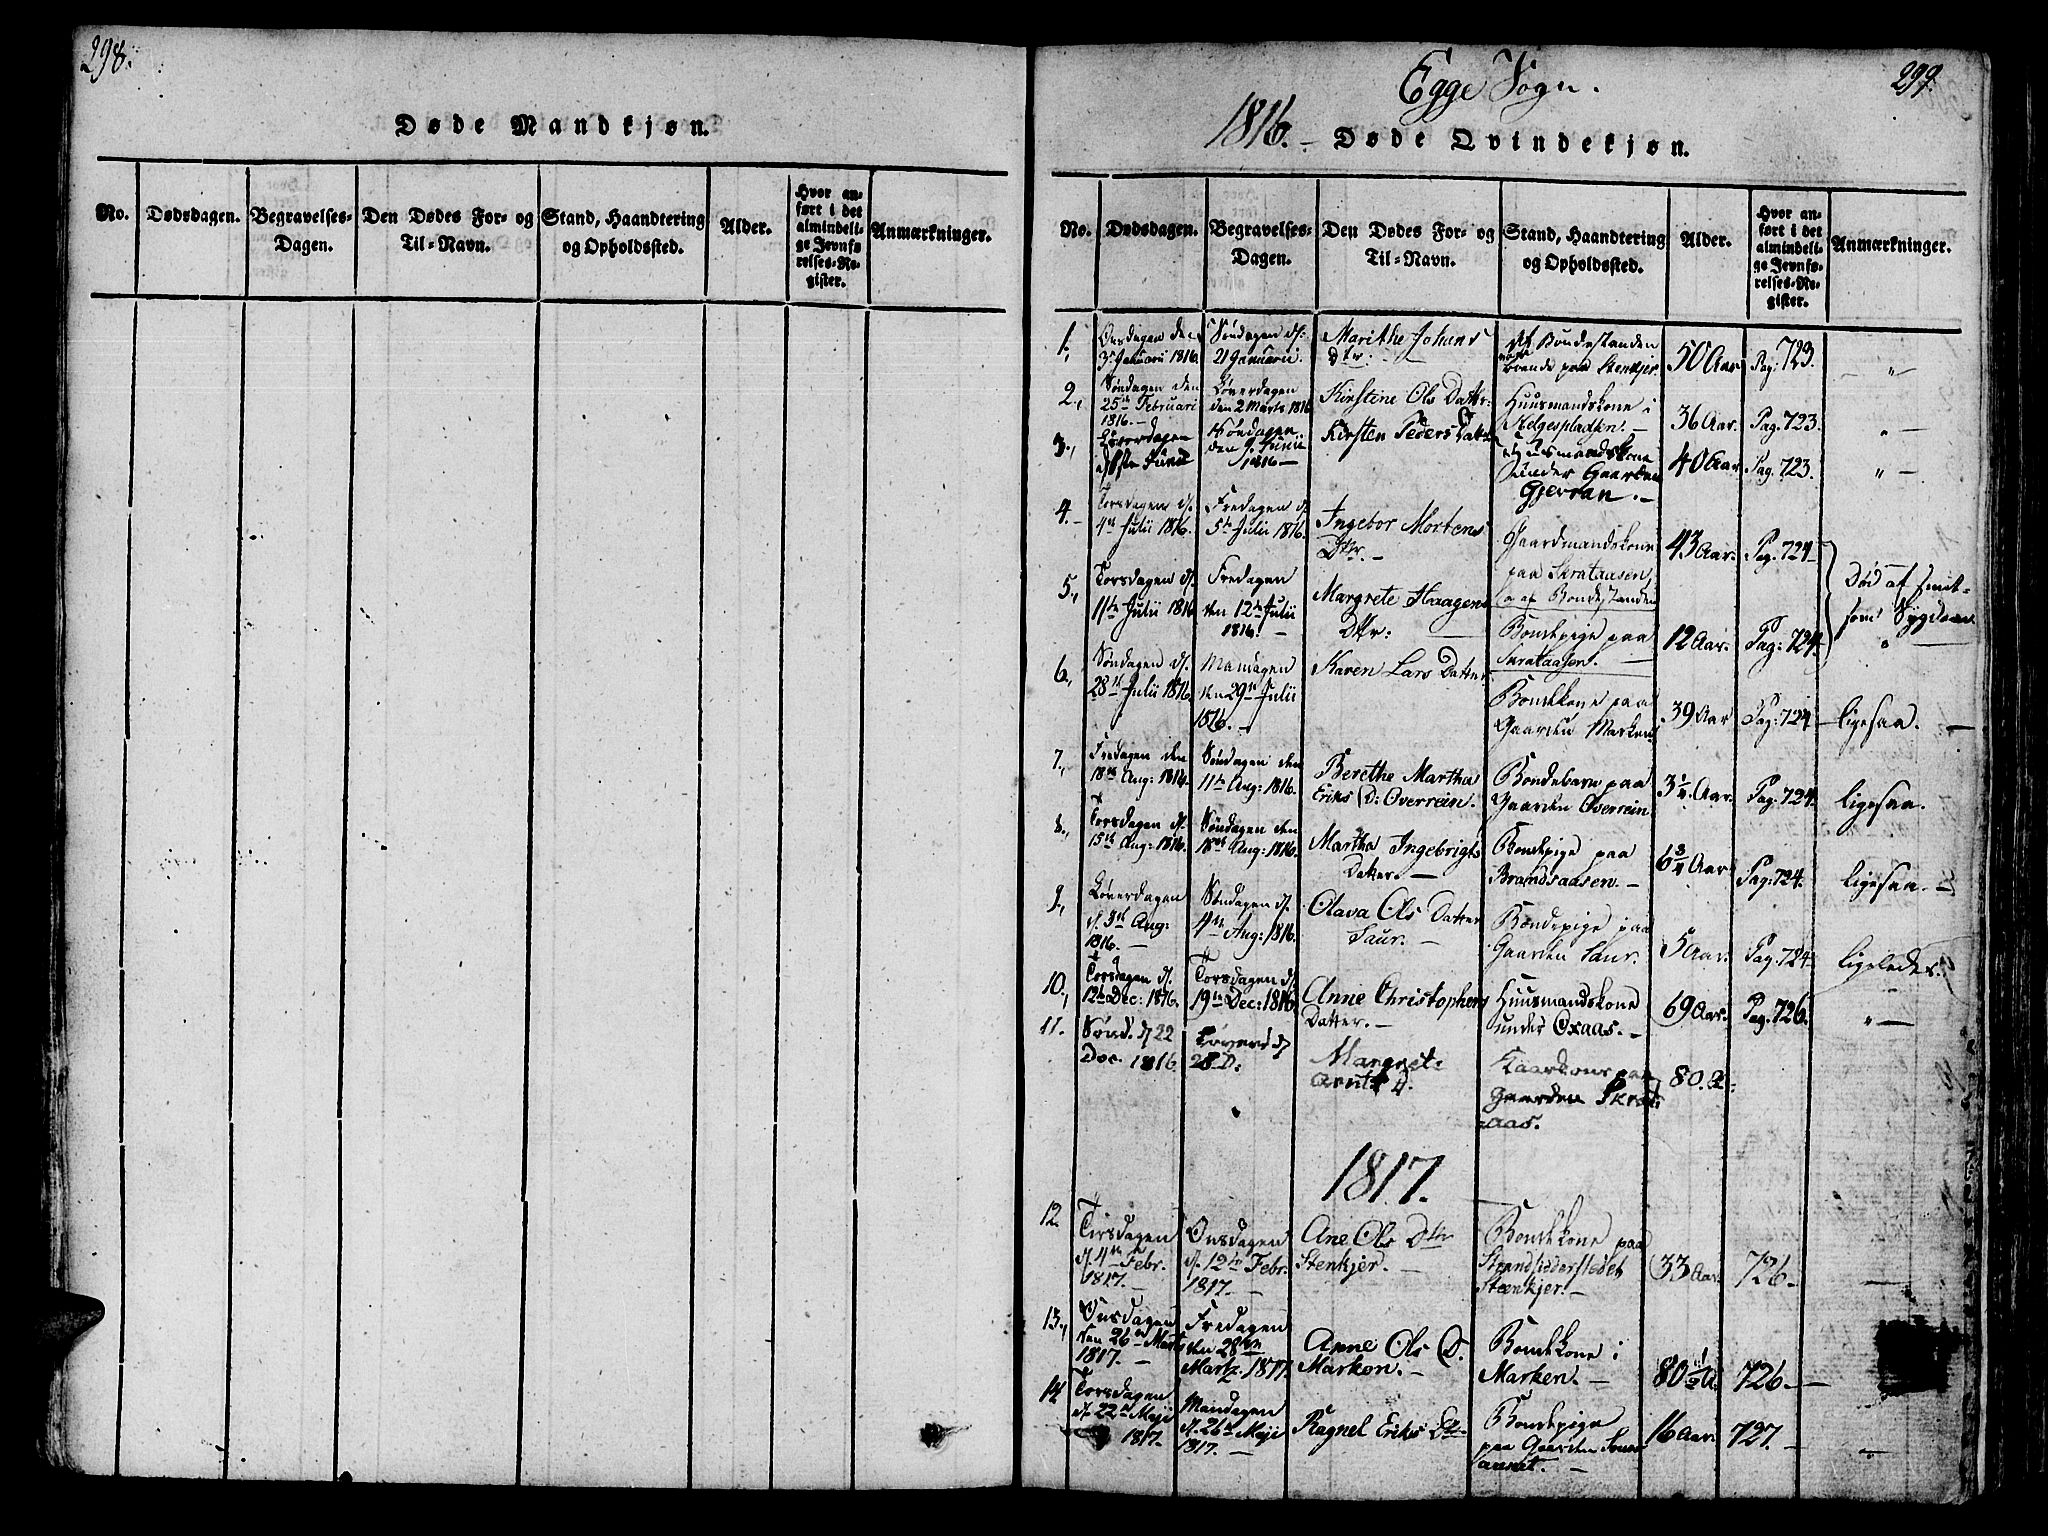 298.
Døde Mandkjøn.
No.
Dødsdagen.
Begravelses-
Dagen.
Den Dødes For- og
Til-Navn.
Stand, Haandtering
og Opholdssted.
Alder.
Hvor an-
ført i det
almindeli-
ge Jevnfø-
relses-Re-
gister.
Anmærkninger.
Egge Sogn.
299.
1816. - Døde Qvindekjøn.
No.
Dødsdagen.
Begravelses-
Dagen.
Den Dødes For- og
Til-Navn.
Stand, Haandtering
og Opholdssted.
Alder.
Hvor an-
ført i det
almindeli-
ge Jevnfø-
relses-Re-
gister.
Anmærkninger.
1.
Onsdagen den
3 Januarii 1816.
Søndagen d.
21 Januarii.
Marithe Johans
Dtr.
Af Bondestanden
boende paa Stenkjer.
50 Aar
Pag: 723.
"
2.
Søndagen den
25de Februari
1816.
Løverdagen
den 2 Marts 1816
Kirstine Ols Datter:
Huusmandskone i
Helgespladsen.
36 Aar.
Pag. 723.
"
3.
Løverdagen
Junii
Søndagen
den 9. Junii
1816
Kirsten Peders Datt
Huusmandskone
under Gaarden
Gjevran.
40 Aar
Pag. 723.
"
4.
Torsdagen d.
4de Julii 1816.
Fredagen d.
5te Julii 1816.
Ingebor Mortens
Dtr.
Gaardmandskone
paa Skrataasen,
og af Bondestanden
43 Aar.
Pag. 724
Død af smit-
som Sygdom
5.
Torsdagen d.
11te Julii 1816
Fredagen
den 12te Julii
1816.
Margrete Haagens
Dttr:
Bondepige paa
Skrataasen.
12 Aar.
Pag: 724.
"
6.
Søndagen d.
28de Julii 1816
Mandagen
den 29de Julii
1816.
Karen Lars Datter
Bondekone paa
Gaarden Marken
39 Aar
Pag: 724
ligesaa.
7.
Fredagen den
18de Aug: 1816.
Søndagen den
11te Aug: 1816.
Berethe Martha
Eriks D: Overrein.
Bondebarn paa
Gaarden Overrein
3 1/4 Aar.
Pag. 724.
ligesaa.
8.
Torsdagen d.
15de Aug: 1816.
Søndagen den
18de Aug: 1816.
Martha Ingebrigts
Datter.
Bondepige paa
Brandsaasen.
6 3/4 Aar
Pag: 724.
ligesaa.
9.
Løverdagen
d. 3de Aug:
1816.
Søndagen d.
4de Aug: 1816.
Olava Ols Datter
Saur.
Bondepige paa
Gaarden Saur.
5 Aar.
Pag: 724
ligeledes.
10.
Torsdagen d.
12te Dec: 1816.
Torsdagen d.
19de Dec: 1816.
Anne Christophers
Datter.
Huusmandskone
under Oxaas.
69 Aar.
Pag. 726.
"
11.
Sønd. d 22
Dec. 1816
Løverd d
28 D:
Margret
Arnts D.
Kaarkone paa
Gaarden Skrat
aas.
80. A:
1817.
12.
Tirsdagen
d. 4de Febr.
1817.
Onsdagen
d. 12te Febr.
1817.
Ane Ols Dtr
Stenkjer.
Bondekone paa
Strandsidderstedet
Steenkjer.
33 Aar
726
13.
Onsdagen
den 26de Marts
1817.
Fredagen
den 28de
Marts. 1817.
Anne Ols D.
Marken.
Bondekone i
Marken.
80 1/2 A.
726
14
Torsdagen
d. 22de Maji
1817.
Mandagen
d. 26de Maji
1817.
Ragnel Eriks Dtr
Bondepige
paa Gaarden
16 Aar
727.